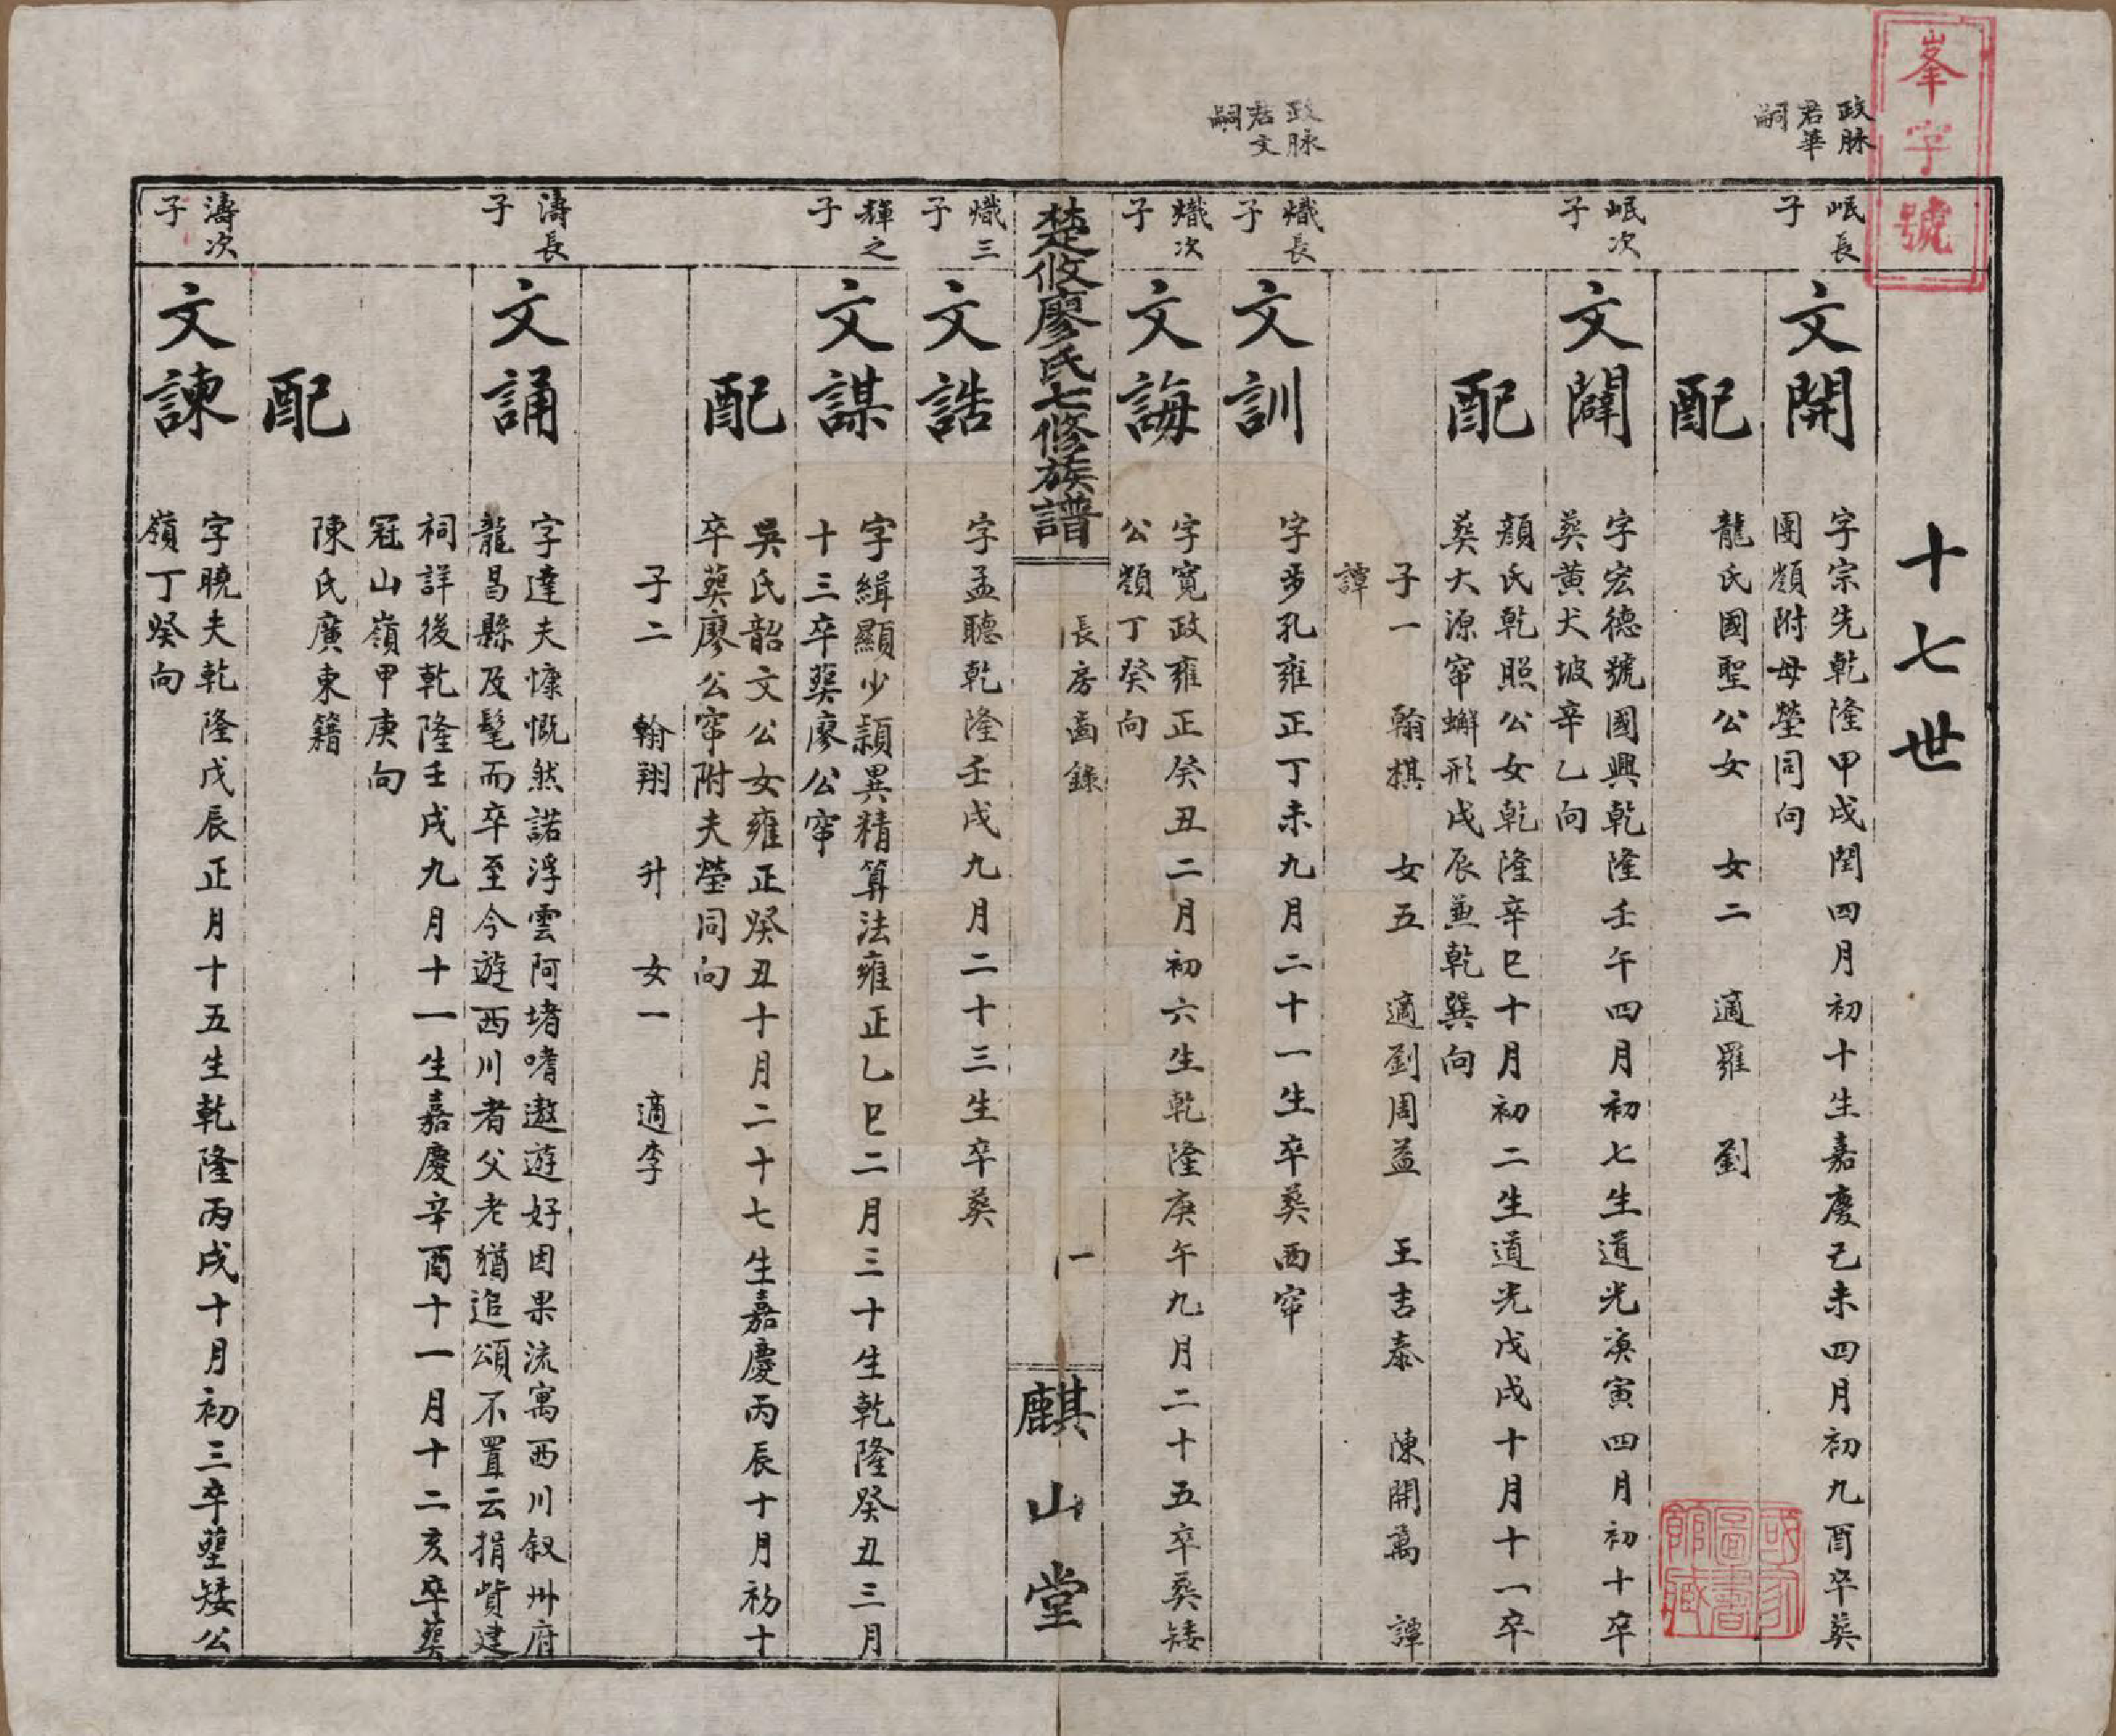 峯字號
十七世
政脉
君華
嗣
岷長
子
文開
字宗先乾隆甲戌閏四月初十生嘉慶己未四月初九酉卒葬
團嶺附母塋同向
配
龍氏國聖公女 女二 適羅 劉
岷次
子
文闢
字宏德號國興乾隆壬午四月初七生道光庚寅四月初十卒
葬黃犬坡辛乙向
配
顏氏乾照公女乾隆辛巳十月初二生道光戊戌十月十一卒
葬大源窂蠏形戌辰兼乾巽向
子一 翰棋 女五 適劉周益 王吉泰 陳開萬 譚
譚
政脉
君文
嗣
熾長
子
文訓
字步孔雍正丁未九月二十一生卒葬西窂
熾次
子
文誨
字寬政雍正癸丑二月初六生乾隆庚午九月二十五卒葬矮
公嶺丁癸向
楚攸廖氏七修族譜
長房齒錄
一
麒山堂
熾三
子
文誥
字孟聽乾隆壬戌九月二十三生卒葬
輝之
子
文謀
字緝顯少頴異精算法雍正乙巳二月三十生乾隆癸丑三月
十三卒葬廖公窂
配
吳氏韶文公女雍正癸丑十月二十七生嘉慶丙辰十月初十
卒葬廖公窂附夫塋同向
子二 翰翔 升 女一 適李
濤長
子
文誦
字達夫慷慨然諾浮雲阿堵嗜遨遊好因果流寓西川叙州府
龍昌縣及髦而卒至今遊西川者父老猶追頌不置云捐貲建
祠詳後乾隆壬戌九月十一生嘉慶辛酉十一月十二亥卒葬
冠山嶺甲庚向
配
陳氏廣東籍
濤次
子
文諫
字曉夫乾隆戊辰正月十五生乾隆丙戌十月初三卒塟矮公
嶺丁癸向
國家圖書館藏